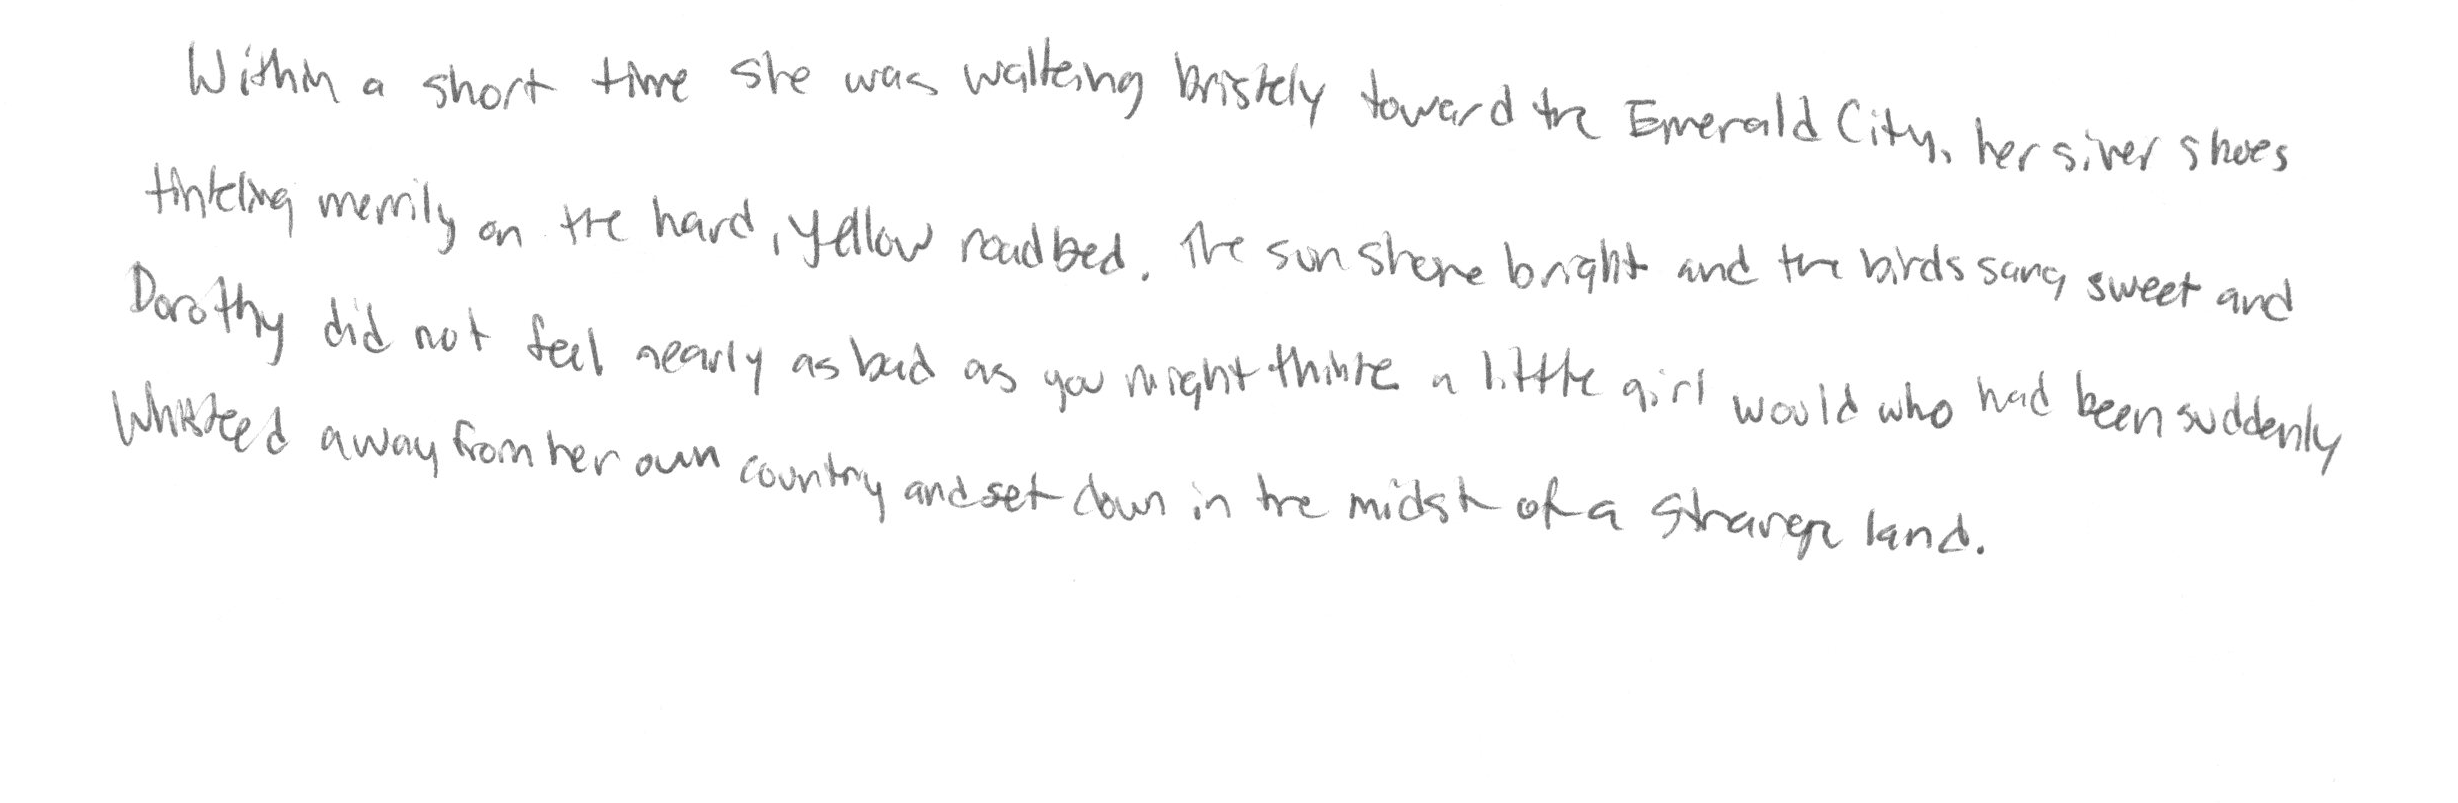 Within a short time she was walking briskly toward the Emerald City, her silver shoes
tinkling merrily on the hard, yellow roadbed. The sun shone bright and the birds sang sweet and
Dorothy did not feel nearly as bad as you might think a little girl would who had been suddenly
whisked away from her own country and set down in the midst of a strange land.